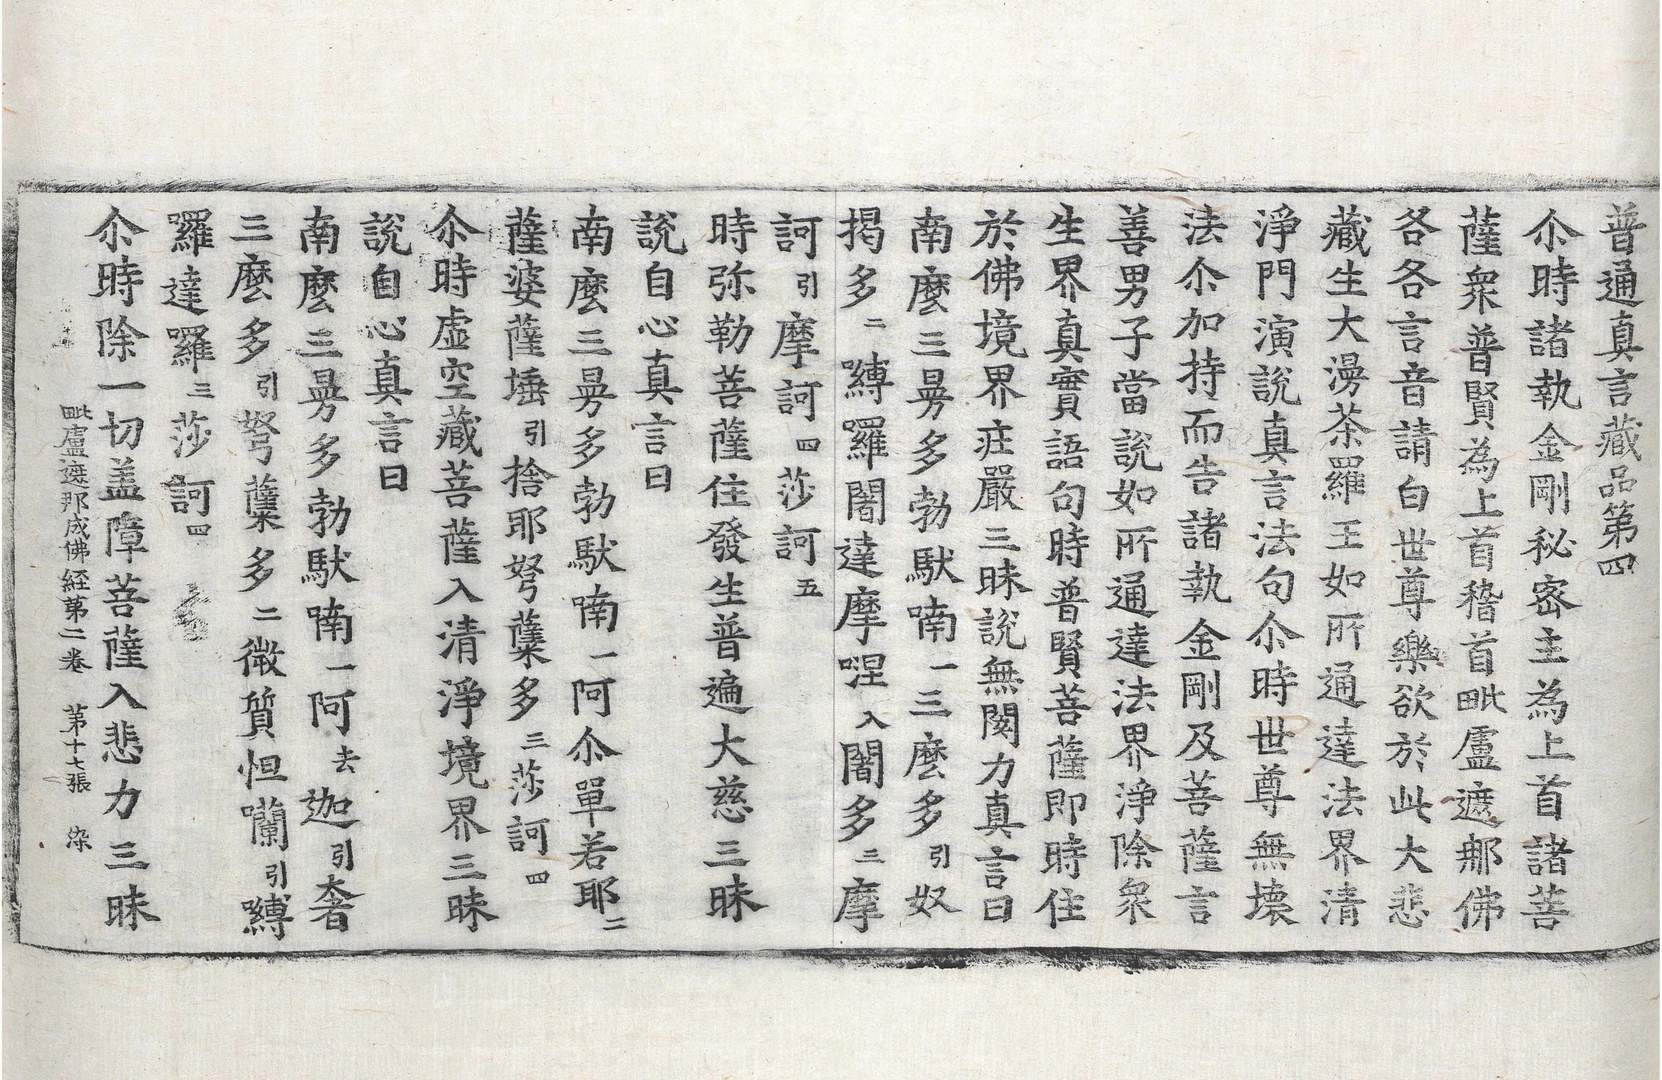 普通真言藏品第四
尒時諸執金剛秘密主為上首諸菩
薩衆普賢為上首稽首毗盧遮那佛
各各言音請白世尊樂欲於此大悲
藏生大漫茶羅王如所通達法界清
淨門演說真言法句尒時世尊無壊
法尒加持而告諸執金剛及菩薩言
善男子當說如所通達法界淨除衆
生界真實語句時普賢菩薩即時住
於佛境界㽵嚴三昧說無閡力真言曰
南麼三曼多勃馱喃一三麼多引奴
揭多二嚩羅闍達摩涅入闍多三摩
訶引摩訶四莎訶五
時弥勒菩薩住發生普遍大慈三昧
說自心真言曰
南麼三曼多勃馱喃一阿尒單若耶二
薩婆薩埵引捨耶弩蘖多三莎訶四
尒時虛空藏菩薩入清淨境界三昧
說自心真言曰
南麼三曼多勃馱喃一阿去迦引奢
三麼多引弩蘖多二微質怛囒引嚩
羅達羅三莎訶四
尒時除一切盖障菩薩入悲力三昧
毗盧遮那成佛経第二卷 第十七張 染